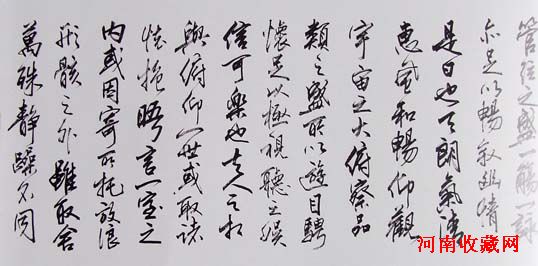 管弦之盛一觴一詠
亦足以暢敘幽情
是日也天朗氣清
惠風和暢仰觀
宇宙之大俯察品
類之盛所以遊目騁
懷足以極視聽之娛
信可樂也夫人之相
與俯仰一世或取諸
懷抱晤言一室之
內或因寄所托放浪
形骸之外雖取舍
萬殊靜躁不同
河南收藏网